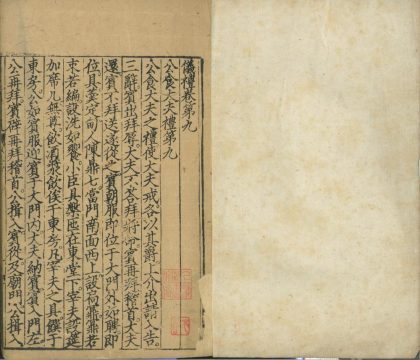 儀禮卷第九
公食大夫禮第九
公食大夫之禮使大夫戒各以其爵上介出請入告
三辭賓出拜辱大夫不荅拜將命賓再拜稽首大夫
還賓不拜送遂從之賓朝服即位于大門外如聘即
位具羹定甸人陳鼎七當門南面西上設扃鼏鼏若
束若編設洗如饗小臣具槃匜在東堂下宰夫設筵
加席几無尊飲酒漿飲俟于東房凡宰夫之具饌于
東房公如賓服迎賓于大門內大夫納賓賓入門左
公再拜賓辟再拜稽首公揖入賓從及廟門公揖入